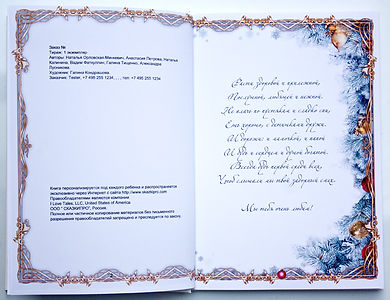 Заказ №
Тираж: 1 экземпляр
Авторы: Наталья Орловская Минкевич, Анастасия Петрова, Наталья
Калинина, Вадим Фатхуллин, Галина Тищенко, Александра
Лусникова.
Художник: Галина Кондрашова.
Заказчик: Tester, +7 495 255 1234, , , , тел: +7 495 255 1234
Книга персонализируется под каждого ребенка и распространяется
эксклюзивно через Интернет с сайта http://www.skazkipro.com
Правообладателями являются компании
I Love Tales, LLC, United States of America
ООО " СКАЗКИПРО", Россия.
Полное или частичное копирование материалов без письменного
разрешения правообладателей запрещено и преследуется по закону.
Расти здоровой и прилежной,
Послушной, любящей и нежной.
Не плачь по пустякам и сладко спи,
Ешь хорошо, с девчонками дружи.
И дорожи и мамочкой, и папой
И будь и сердцем и душой богатой.
Всегда будь первой среди всех,
Чтоб слышали мы твой задорный смех.
Мы тебя очень любим!